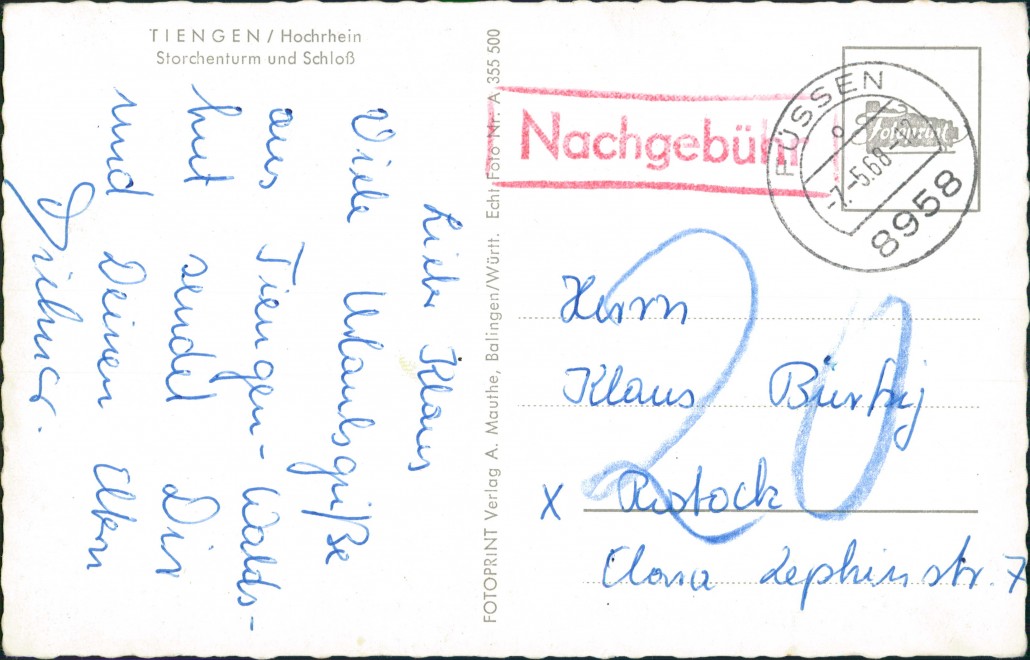 TIENGEN / Hochrhein
Storchenturm und Schloß
Lieber Klaus
Viele Urlaubsgrüße
aus Tiengen-Walds-
hut sendet Dir
und Deinen Eltern
FOTOPRINT Verlag A. Mauthe, Balingen/Württ. Echt Foto Nr. A 355 500
Nachgebühr
FÜSSEN
fotoprint
-7.-5.68-12
8958
20
Herrn
Klaus
X Rostock
Clara Zepkin str. 7